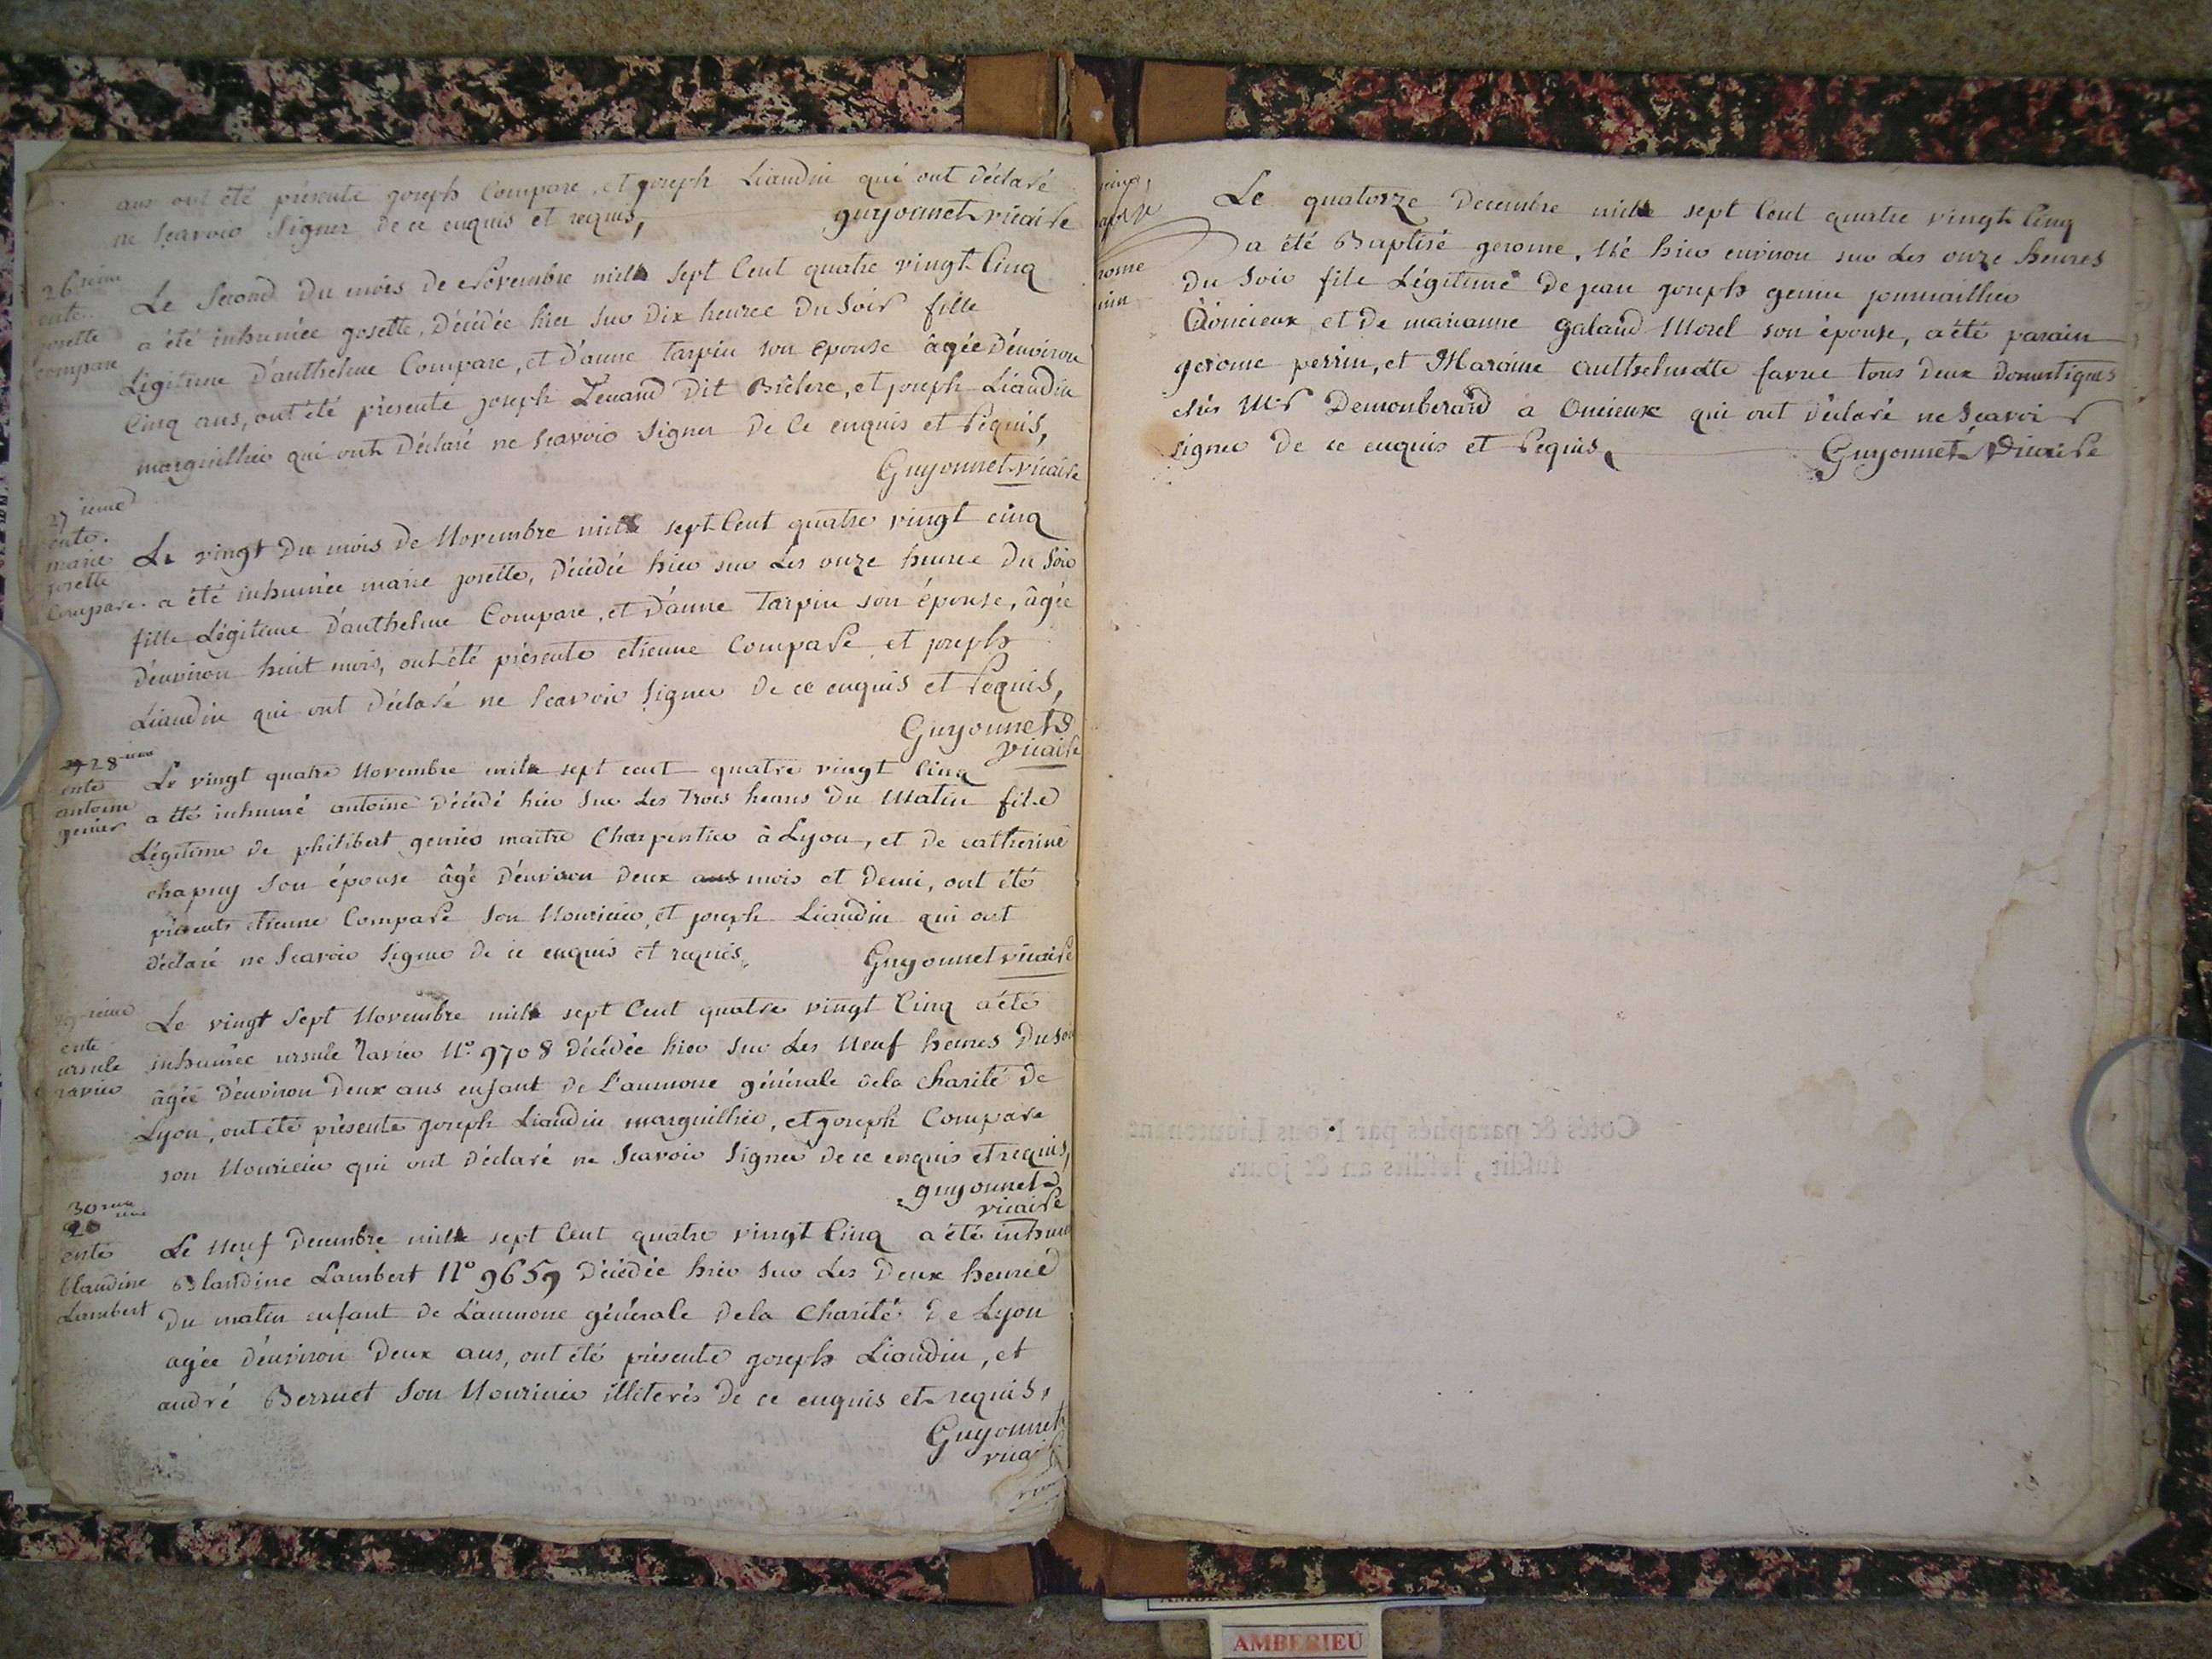 ans ont été présents joseph Compare, et joseph Liaudin qui ont déclaré
ne scavoir signer de ce enquis et requis,
guyonnet vicaire
26 ieme
ente.
josette
compare
Le second du mois de Novembre mille sept Cent quatre vingt Cinq
a été inhumée josette, décédée hier sur dix heures du soir fille
Légitime d'anthelme Compare, et d'anne Tarpin son épouse âgée d'environ
Cinq ans, ont été présents joseph Lenard dit Brelere, et joseph Liaudin
marguillier qui ont déclaré ne scavoir signer de Ce enquis et Requis,
Guyonnet vicaire
27 ieme
ente.
marie
josette
Compare.
Le vingt du mois de Novembre mille sept Cent quatre vingt cinq
a été inhumée marie josette, décédée hier sur les onze heures du soir
fille Légitime d'anthelme Compare, et d'anne Tarpin son épouse, âgée
d'environ huit mois, ont été présents etienne Compare et joseph
Liaudin qui ont déclaré ne scavoir signer de ce enquis et Requis,
Guyonnet
vicaire
28 ieme
ente
antoine
genier
Le vingt quatre Novembre mille sept cent quatre vingt Cinq
a été inhumé antoine décédé hier sur les Trois heures du Matin fils
Légitime de philibert genier maitre Charpentier à Lyon, et de catherine
chapuy son épouse âgé d'environ deux ans mois et demi, ont été
présents etienne Compare son Nouricier, et joseph Liaudin qui ont
déclaré ne scavoir signer de ce enquis et requis,
Guyonnet vicaire
ieme
ente
ursule
ravier
Le vingt sept Novembre mille sept Cent quatre vingt Cinq a été
inhumée ursule Ravier N.º 9708 décédée hier sur les Neuf heures du soir
âgée d'environ deux ans enfant de L'aumone générale de la Charité de
Lyon, ont été présents joseph Liaudin marguillier, et joseph Compare
son Nouricier qui ont déclaré ne scavoir signer de ce enquis et requis,
guyonnet
vicaire
30 ieme
ente
blandine
Lambert
Le Neuf Decembre mille sept Cent quatre vingt Cinq a été inhumée
Blandine Lambert Nº 9659 décédée hier sur les Deux heures
du matin enfant de L'aumone générale de la Charité de Lyon
agée d'environ deux ans, ont été présents joseph Liaudin, et
andré Berruet son Nouricier illiterés de ce enquis et requis,
Guyonnet
vicaire
Le quatorze Decembre mille sept Cent quatre vingt Cinq
a été Baptisé gerome, Né hier environ sur les onze heures
du soir fils Légitime de jean joseph genin journaillier
D'oncieux et de marianne galand Morel son épouse, a été parain
gerome perrin, et Maraine anthelmette favre tous deux domestiques
chés Mr Demonberard a Oncieux qui ont déclaré ne scavoir
signer de ce enquis et Requis,
Guyonnet vicaire
Cotés & paraphés par Nous Lieutenant
susdit, lesdits an & jour.
AMBERIEU